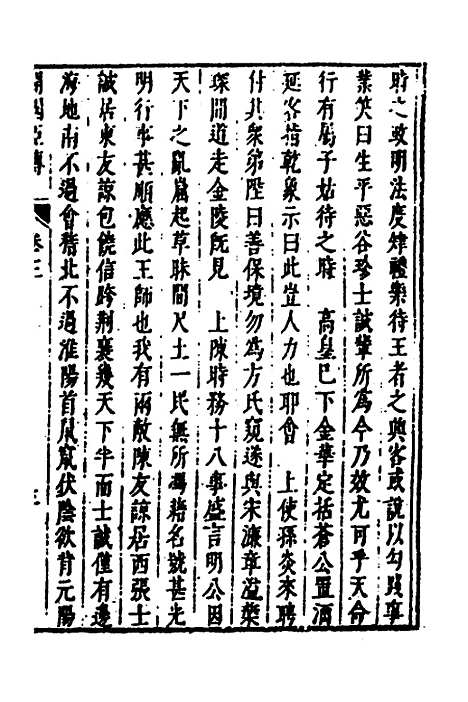 時之政明法度肄禮樂待王者之興客或說以勾踐事
業笑曰生平惡谷珍士誠輩所爲今乃效尤可乎天命
行有屬子姑待之時　高皇巳下金華定括蒼公置酒
延客指乾象示曰此豈人力也耶會　上使孫炎來聘
付其衆弟陞曰善保境勿爲方氏窺遂與宋濂章溢葉
琛間道走金陵旣見　上陳時務十八事盛言明公因
天下之亂崛起草昧間尺土一民無所藉名號甚光
明行事甚順應此王師也我有兩敵陳友諒居西張士
誠居東友諒包饒信跨荆襄幾天下半而士誠僅有邊
海地南不過會稽北不過淮陽首鼠竄伏陰欲背元陽
開國臣傳
卷三
三